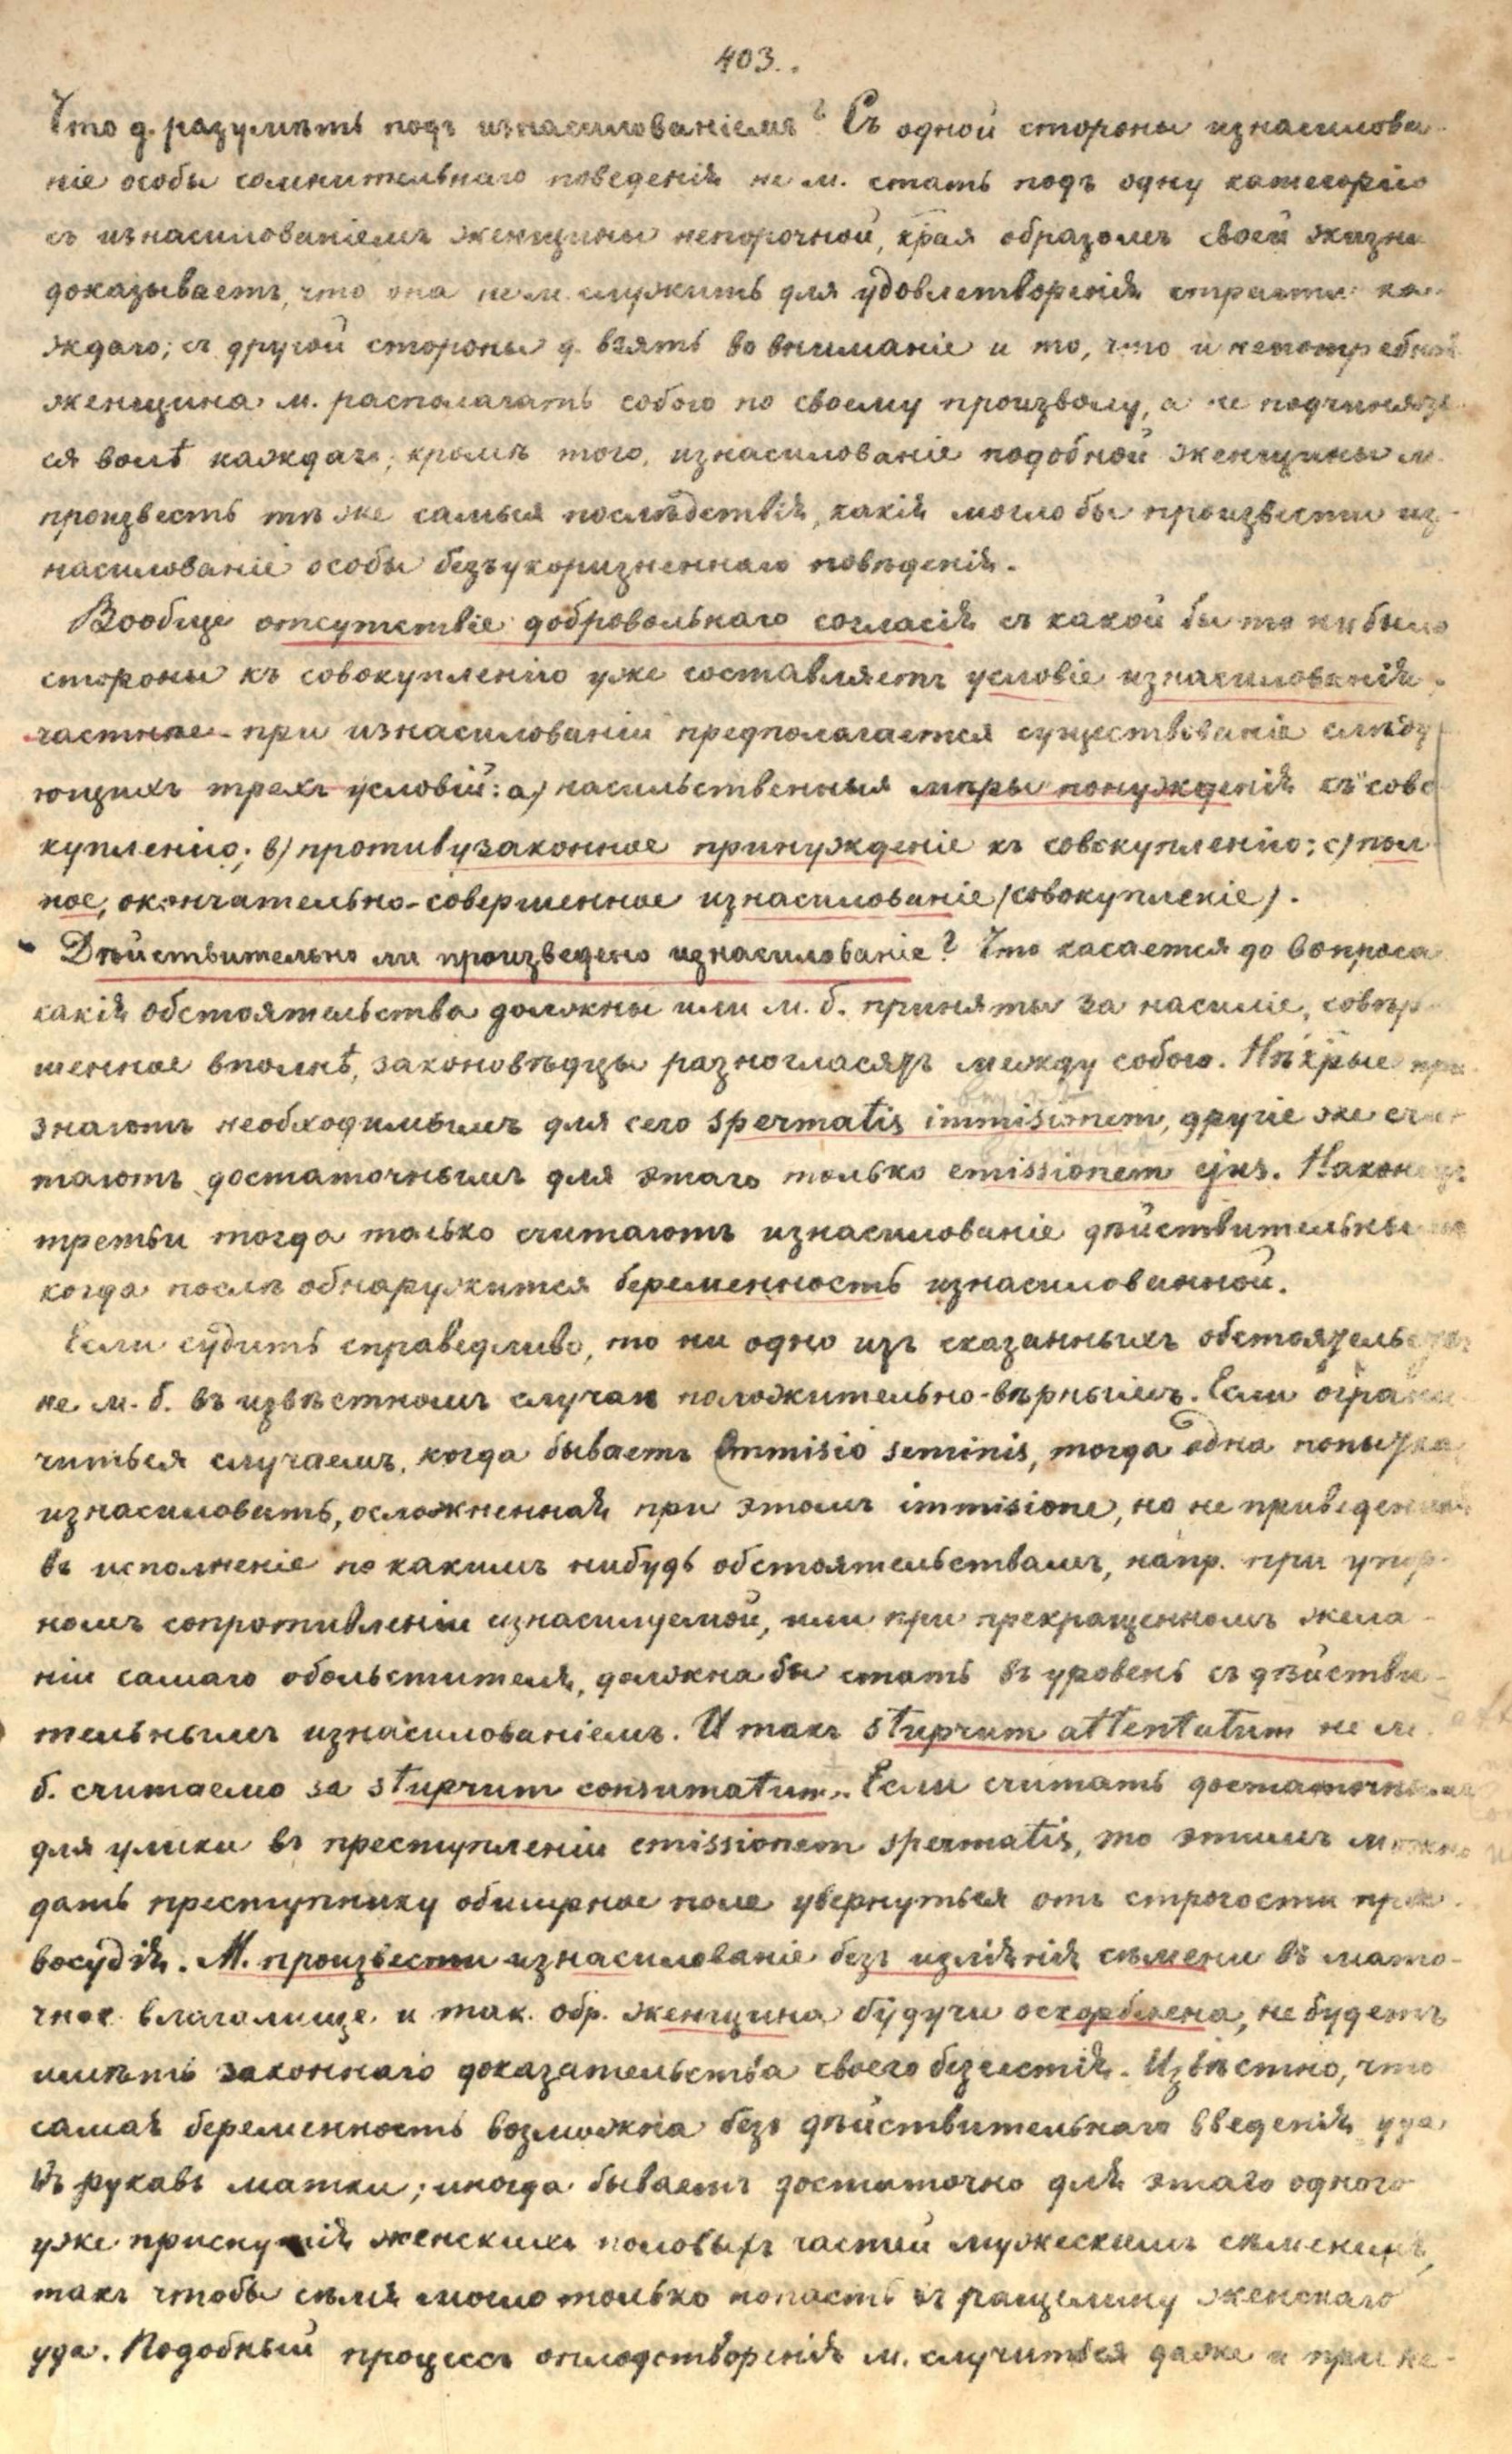 403.
Что д. разумѣть подъ изнасилованіемъ? Съ одной стороны изнасилова-
ніе особы сомнительнаго поведенія не м. стать подъ одну категорію
съ изнасилованіемъ женщины непорочной, края образомъ своей жизни
доказываетъ, что она не м. служить для удовлетворенія страсти ка-
ждаго; съ другой стороны д. взять во вниманіе и то, что и непотребная
женщина м. располагать собою по своему произволу, а не подчинять
ся волѣ каждаго; кромѣ того, изнасилованіе подобной женщины м.
произвесть тѣ же самыя послѣдствія, какія могло бы произвести из-
насилованіе особы безъукоризненнаго поведенія.
Вообще отсутствіе добровольнаго согласія съ какой бы то ни было
стороны къ совокупленію уже составляетъ условіе изнасилованія.
частное при изнасилованіи предполагается существованіе слѣду
ющихъ трехъ условій: а) насильственныя мѣры понужденія къ сово
купленію; в) противузаконное принужденіе къ совокупленію; с) пол
ное, окончательно-совершенное изнасилованіе (совокупленіе).
Дѣйствительно ли произведено изнасилованіе? Что касается до вопроса
какія обстоятельства должны или м. б. приняты за насиліе, совер-
шенное вполнѣ, законовѣдцы разногласятъ между собою. Нѣкрые при
знаютъ необходимымъ для сего spermatis immisionem, другіе же счи-
таютъ достаточнымъ для этаго только emissionem ejus. Наконецъ
третьи тогда только считаютъ изнасилованіе дѣйствительнымъ
когда послѣ обнаружится беременность изнасилованной.
Если судить справедливо, то ни одно изъ сказанныхъ обстоятельствъ
не м. б. въ извѣстномъ случаѣ положительно-вѣрнымъ. Если ограни
читься случаемъ, когда бываетъ immisio seminis, тогда одна попытка
изнасиловать, осложненная при этомъ immisione, но не приведенная
въ исполненіе по какимъ нибудь обстоятельствамъ, напр. при упор-
номъ сопротивленіи изнасилуемой, или при прекращенномъ жела-
ніи самаго обольстителя, должна бы стать въ уровень съ дѣйстви-
тельнымъ изнасилованіемъ. И такъ stuprum attentatum не м.
б. считаемо за stuprum consumatum. Если считать достаточнымъ
для улики въ преступленіи emissionem spermatis, то этимъ можно
дать преступнику обширное поле увернуться отъ строгости пра-
восудія. М. произвести изнасилованіе безъ изліянія сѣмени въ мато-
чное влагалище и так. обр. женщина будучи оскорблена, не будетъ
имѣть законнаго доказательства своего безчестія. Извѣстно, что
самая беременность возможна безъ дѣйствительнаго введенія уда
въ рукавъ матки; иногда бываетъ достаточно для этаго одного
уже женскихъ половыхъ частей мужескимъ сѣменемъ,
такъ чтобы сѣмя могло только попасть въ ращелину женскаго
уда. Подобный процессъ оплодотворенія м. случиться даже и при не-